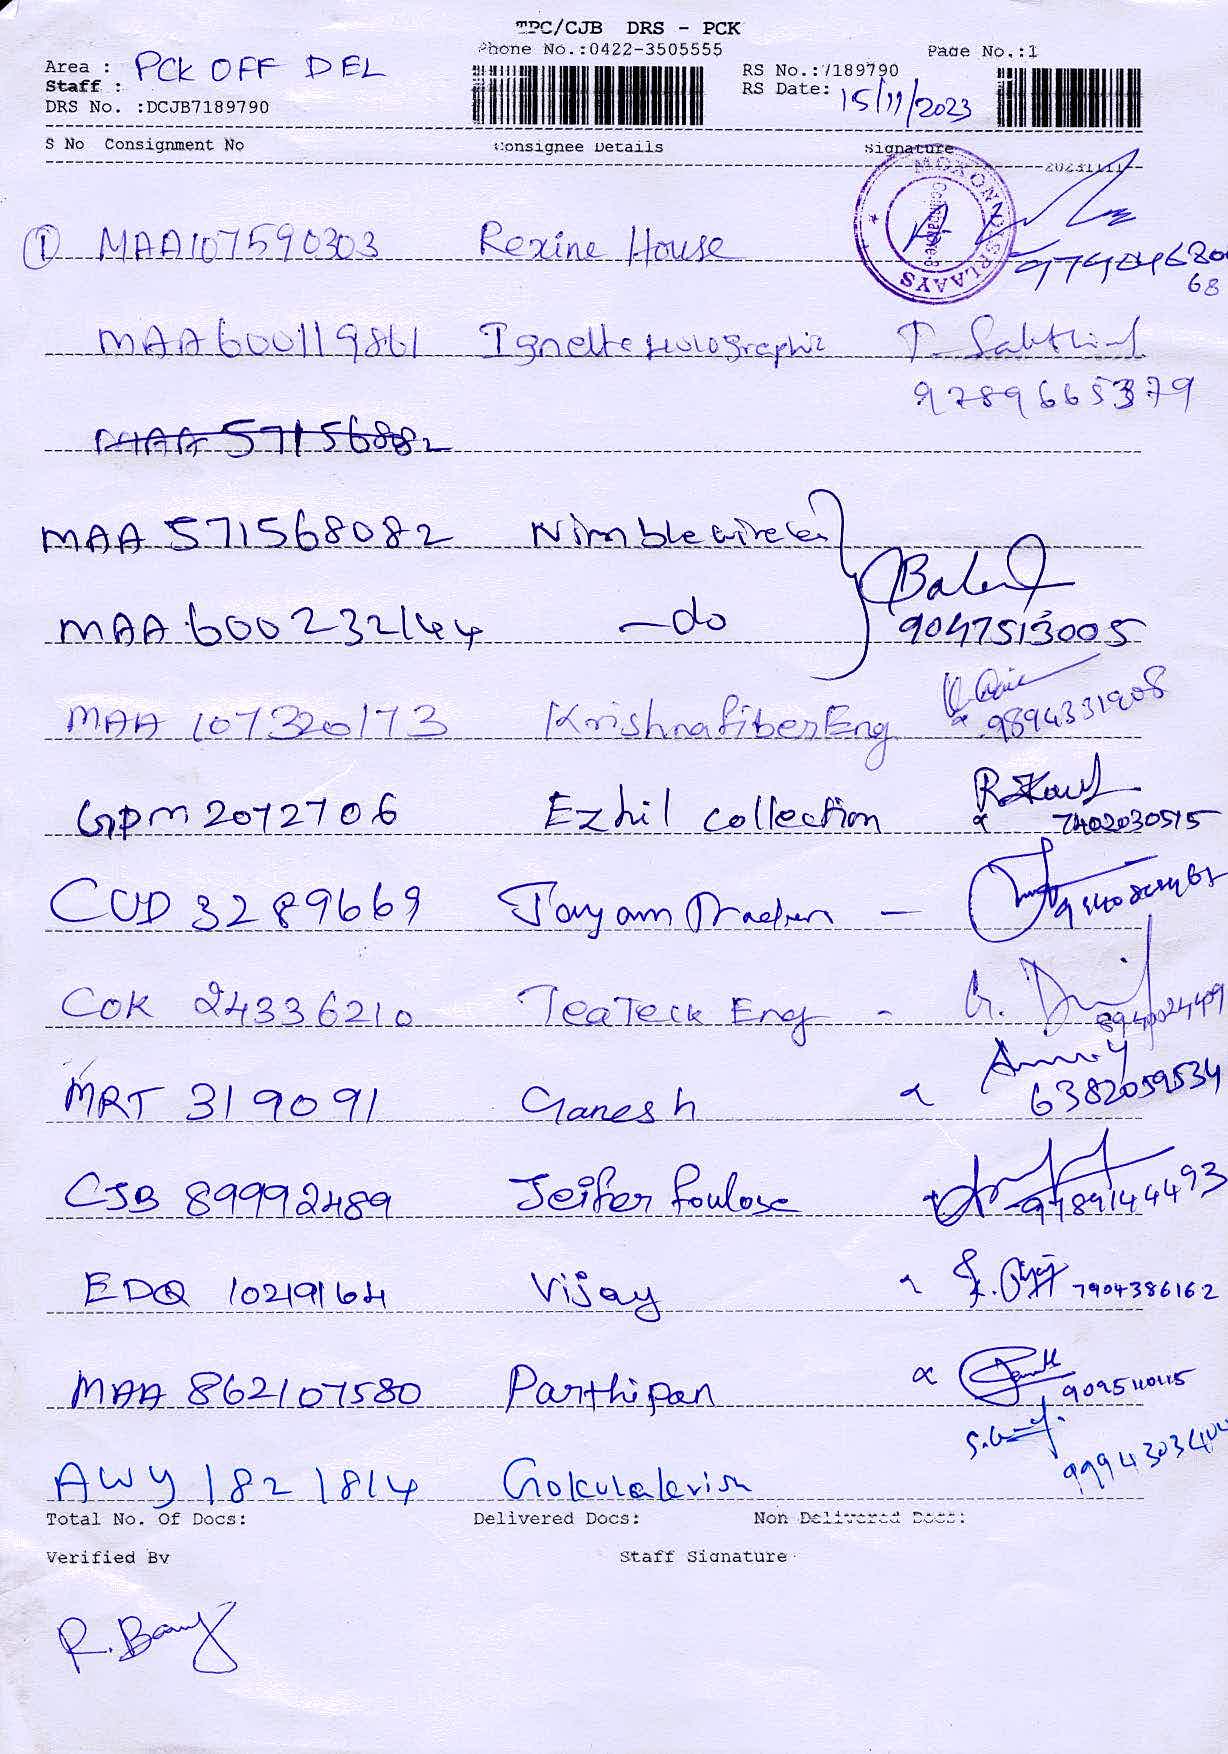 TPC/CJB DRS - PCK
Phone No.:0422-3505555
Page No.:1
Area : PCK OFF DEL
RS No.:7189790
Staff :
RS Date: 15/11/2023
DRS No. :DCJB7189790
S No Consignment No Consignee Details Signature
① MAA107590303 Rexine House
68
MAA600119861 Ignette Holographic T. Sakthivel
9789665379
MAA 57156882
MAA 571568082 Nimble wireles
MAA 600232144 -do 9047513005
MAA 107320173 Krishna fiber Eng 9894331908
GPM 2072706 Ezhil collection 7402030515
CUD 3289669 Jayam -
COK 24336210 TeaTeck Eng -
MRT 319091 Ganesh 6382059534
CJB 89992489 Jeifer Poulose 9789144493
EDQ 10219164 Vijay 7904386162
MAA 862107580 Parthipan
AWY 1821814 Gokulakrish
Total No. Of Docs: Delivered Docs: Non Delivered Docs:
Verified By Staff Signature